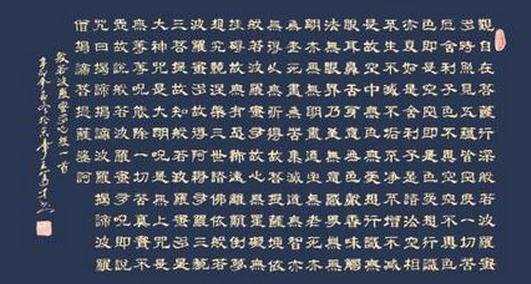 觀自在菩薩行深般若波羅蜜
多時照見五蘊皆空度一切苦
厄舍利子色不異空空不異色
色即是空空即是色受想行識
亦復如是舍利子是諸法空相
不生不滅不垢不淨不增不減
是故空中無色無受想行識無
眼耳鼻舌身意無色聲香味觸
法無眼界乃至無意識界無無
明亦無無明盡乃至無老死亦
無老死盡無苦集滅道無智亦
無得以無所得故菩提薩埵依
般若波羅蜜多故心無罣礙無
罣礙故無有恐怖遠離顛倒夢
想究竟涅槃三世諸佛依般若
波羅蜜多故得阿耨多羅三藐
三菩提故知般若波羅蜜多是
大神咒是大明咒是無上咒是
無等等咒能除一切苦真實不
虛故說般若波羅蜜多咒即說
咒曰揭諦揭諦波羅揭諦波羅
僧揭諦菩提薩婆訶
般若波羅蜜多心經一首